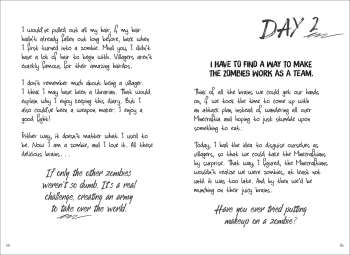 I would've pulled out all my hair, if my hair
hadn't already fallen out long before, back when
I first turned into a zombie. Mind you, I didn't
have a lot of hair to begin with. Villagers aren't
exactly famous for their amazing hairdos.
I don't remember much about being a villager.
I think I may have been a librarian. That would
explain why I enjoy keeping this diary. But I
also could've been a weapon maker: I enjoy a
good fight!
Either way, it doesn't matter what I used to
be. Now I am a zombie, and I love it. All those
delicious brains . . .
If only the other zombies
weren't so dumb. It's a real
challenge, creating an army
to take over the world.
DAY 2
I HAVE TO FIND A WAY TO MAKE
THE ZOMBIES WORK AS A TEAM.
Think of all the brains we could get our hands
on, if we took the time to come up with
an attack plan, instead of wandering all over
Minecraftia and hoping to just stumble upon
something to eat.
Today, I had the idea to disguise ourselves as
villagers, so that we could take the Minecraftians
by surprise. That way, I figured, the Minecraftians
wouldn't realise we were zombies, at least not
until it was too late. And by then we'd be
munching on their juicy brains.
Have you ever tried putting
makeup on a zombie?